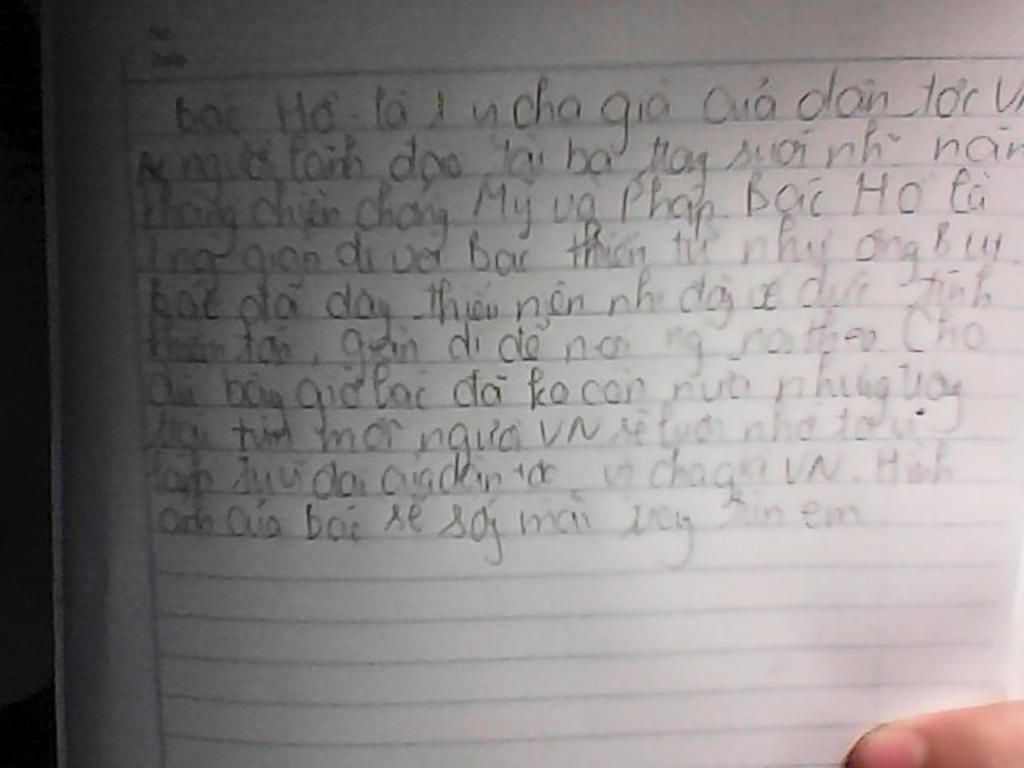 Bác Hồ là 1 vị cha già của dân tộc VN
người lãnh đạo tài ba trog suối nh~ năm
kháng chiến chống Mỹ và Pháp. Bác Hồ là
giản dị với bác thiếu
bác đã dạy thiếu niên nhi đồg đức tính
giản dị để noi theo Cho
dù bây giờ bác đã ko còn nữa nhưng trog
trái tim mọi người VN sẽ luôn nhớ tới vị
lãnh tụ vĩ đại của dân tộc vị cha già VN. Hình
ảnh của bác sẽ sốg mãi trog tim em